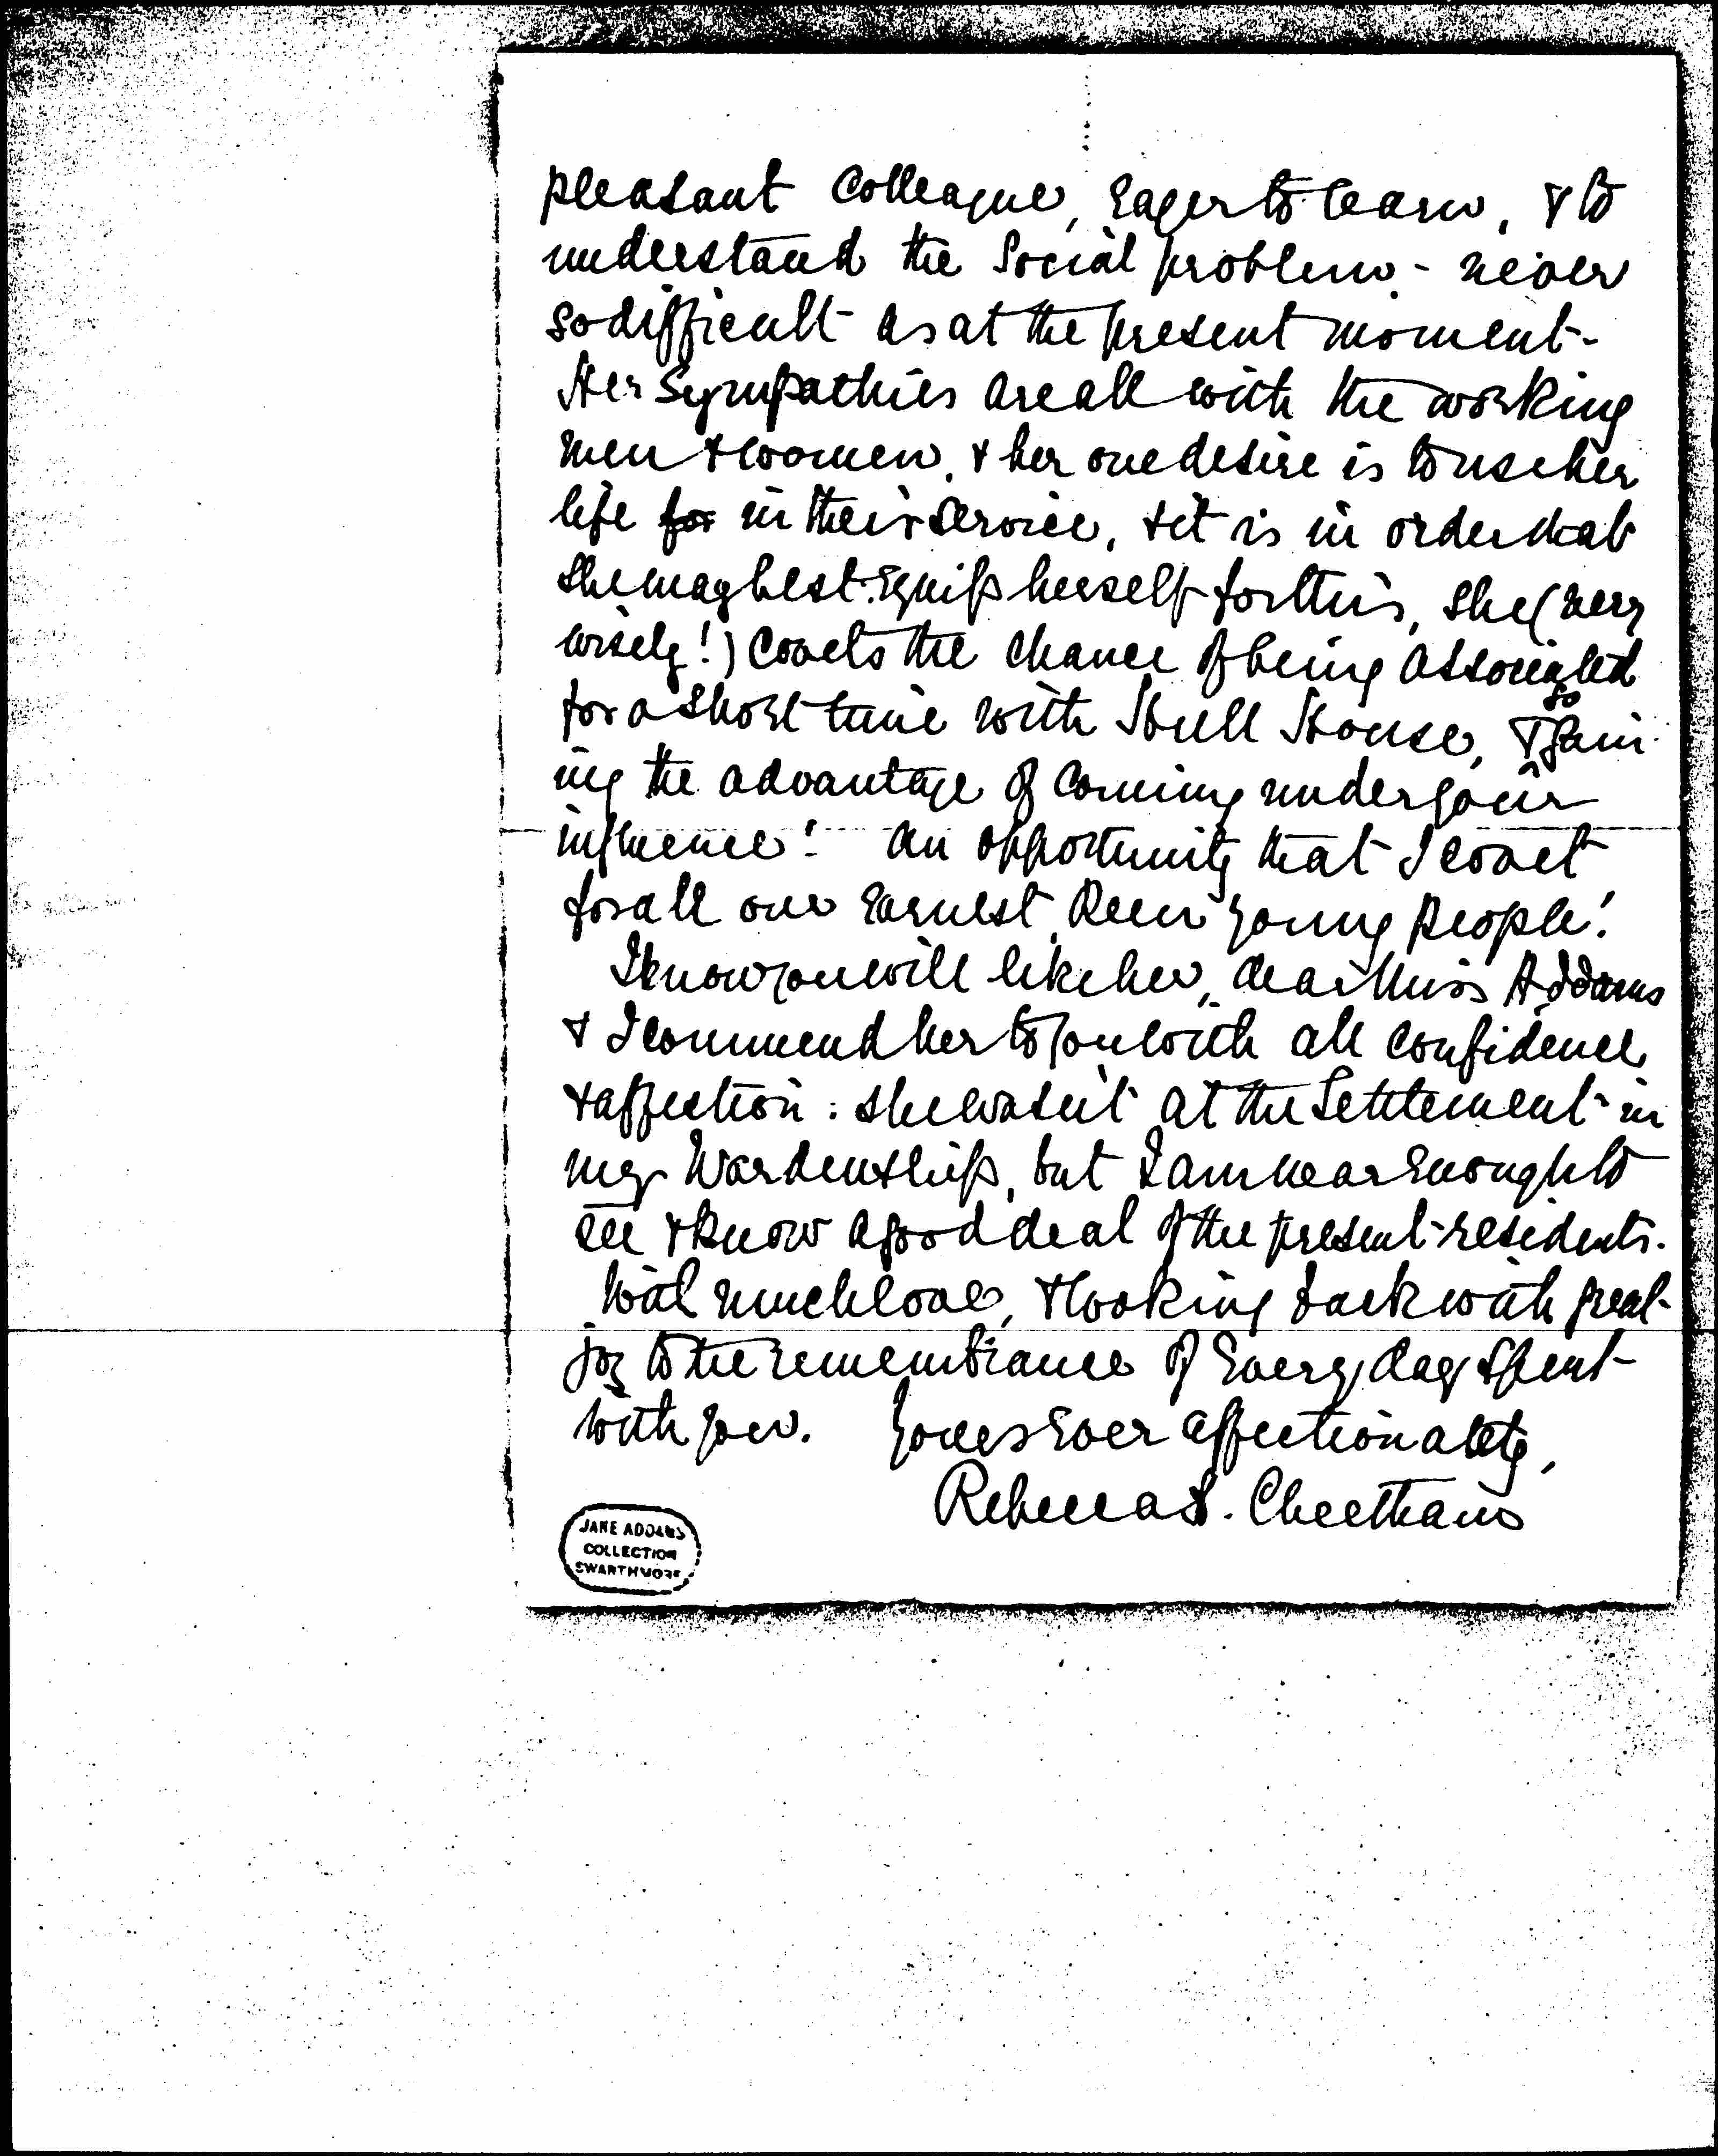 pleasant colleague, eager to learn, & to
understand the Social problem - never
so difficult as at the present moment -
Her Sympathies are all with the working
men & women, & her one desire is to use her
life for in their service, & it is in order that
she may best equip herself for this, she (very
wisely!) covets the chance of being associated
for a short time with Hull House, & so gain-
ing the advantage of coming under your
influence! An opportunity that I covet
for all our earnest, keen young people!
I know you will like her, dear Miss Addams
& I commend her to you with all confidence
& affection: she wasn't at the Settlement in
my Wardenship, but I am near enough to
see & know a good deal of the present residents.
With much love, & looking back with great
joy to the remembrance of every day spent
with you. Yours ever affectionately,
Rebecca S. Cheetham
JANE ADDAMS
COLLECTION
SWARTHMORE